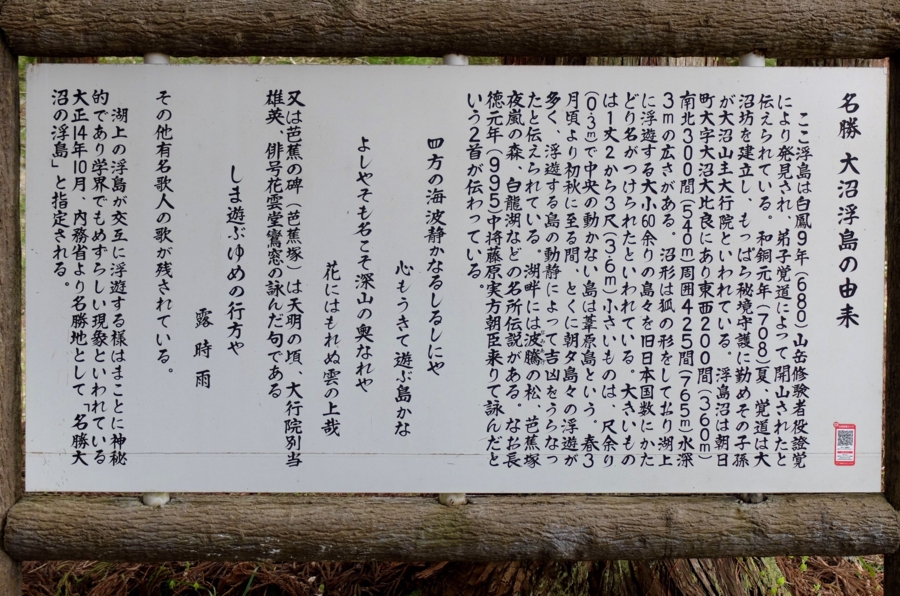 名勝 大沼浮島の由来
ここ浮島は白鳳9年(680)山岳修験者役證覚
により発見され、弟子覚道によって開山されたと
伝えられている。和銅元年(708)夏、覚道は大
沼坊を建立し、もっぱら秘境守護に勤めその子孫
が大沼山主大行院といわれている。浮島沼は朝日
町大字大沼大比良にあり東西200間(360m)
南北300間(540m)周囲425間(765m)水深
3mの広さがある。沼形は狐の形をしており湖上
に浮遊する大小60余りの島々を旧日本国数にかた
どり名がつけられたといわれている。大きいもの
は1丈2から3尺(3.6m)小さいものは、尺余り
(0.3m)で中央の動かない島は葦原島という。春3
月頃より初秋に至る間、とくに朝夕島々の浮遊が
多く、浮遊する島の動静によって吉凶をうらなっ
たと伝えられている。湖畔には波騰の松、芭蕉塚
夜嵐の森、白龍湖などの名所伝説がある。なお長
徳元年(995)中将藤原実方朝臣来りて詠んだと
いう2首が伝わっている。
四方の海波静かなるしるしにや
心もうきて遊ぶ島かな
よしやそも名こそ深山の奥なれや
花にはもれぬ雲の上哉
又は芭蕉の碑(芭蕉塚)は天明の頃、大行院別当
雄英、俳号花雲堂鶯窓の詠んだ句である
しま遊ぶゆめの行方や
露時雨
その他有名歌人の歌が残されている。
湖上の浮島が交互に浮遊する様はまことに神秘
的であり学界でもめずらしい現象といわれている
大正14年10月、内務省より名勝地として、「名勝大
沼の浮島」と指定される。